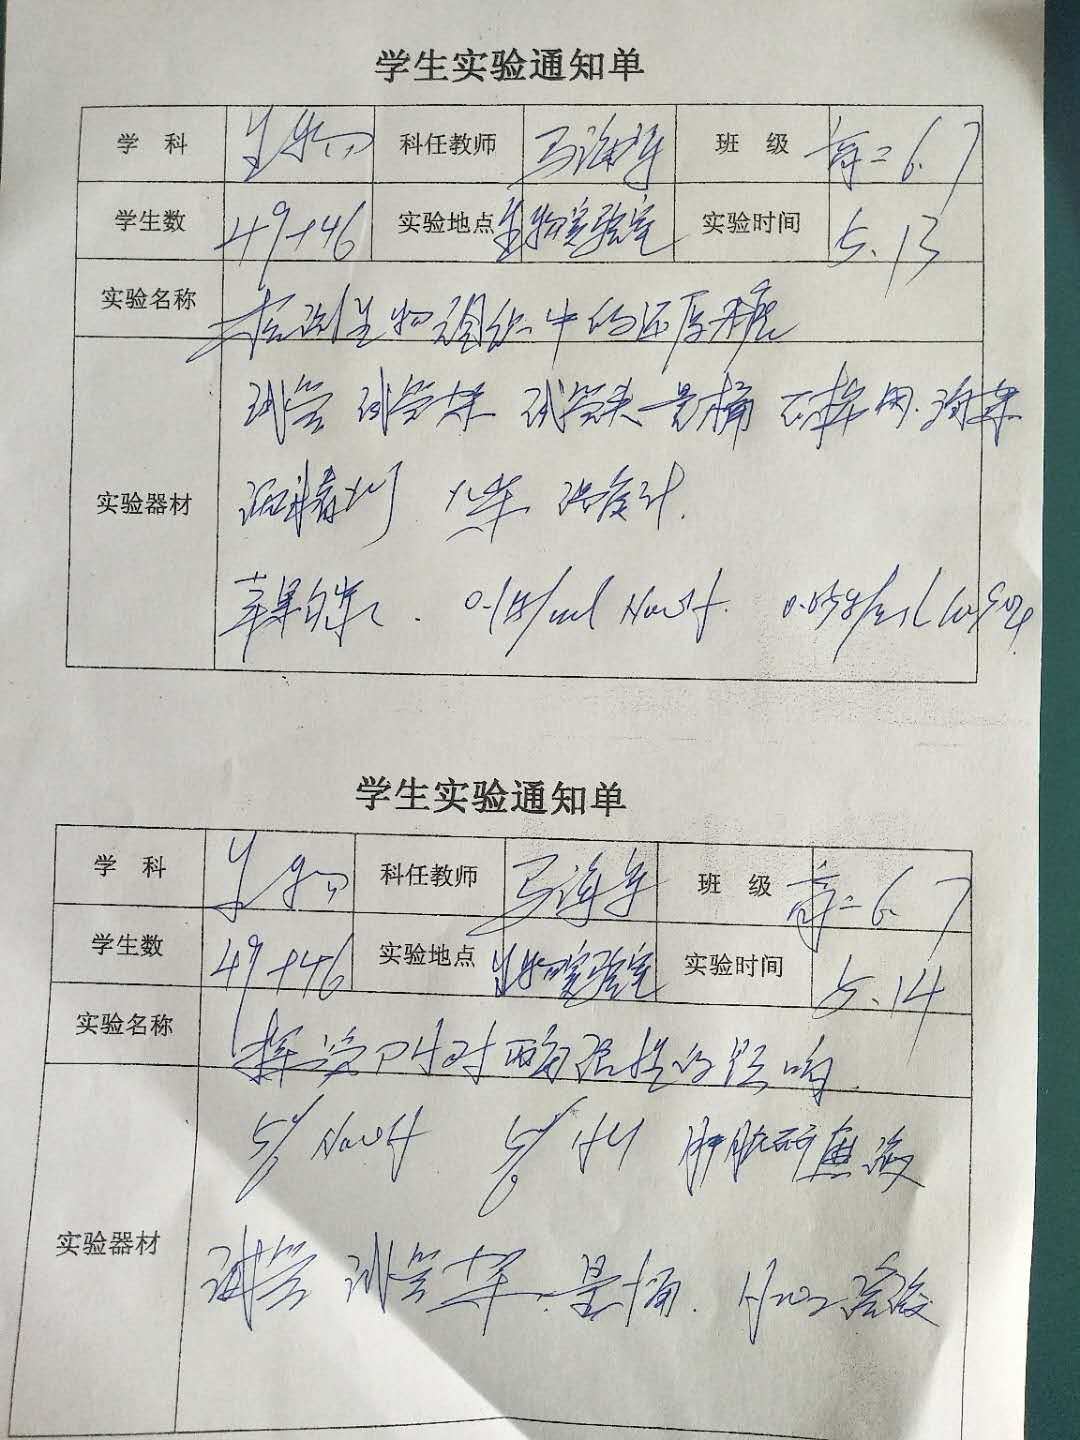 学生实验通知单
学 科 生物 科任教师 马海军 班 级 高二6.7
学生数 49+46 实验地点 生物实验室 实验时间 5.13
实验名称 检测生物组织中的还原糖
试管 试管架 试管夹 量桶 石棉网
实验器材 温度计.
苹果匀浆 . 0.1g/ml NaOH. 0.05g/ml CuSO4
学生实验通知单
学 科 生物 科任教师 马海军 班 级 高二6.7
学生数 49+46 实验地点 生物实验室 实验时间 5.14
实验名称 探究PH对酶活性的影响.
5% NaOH 5% HCl 肝脏研磨液
实验器材 试管 试管架 量桶. H2O2溶液